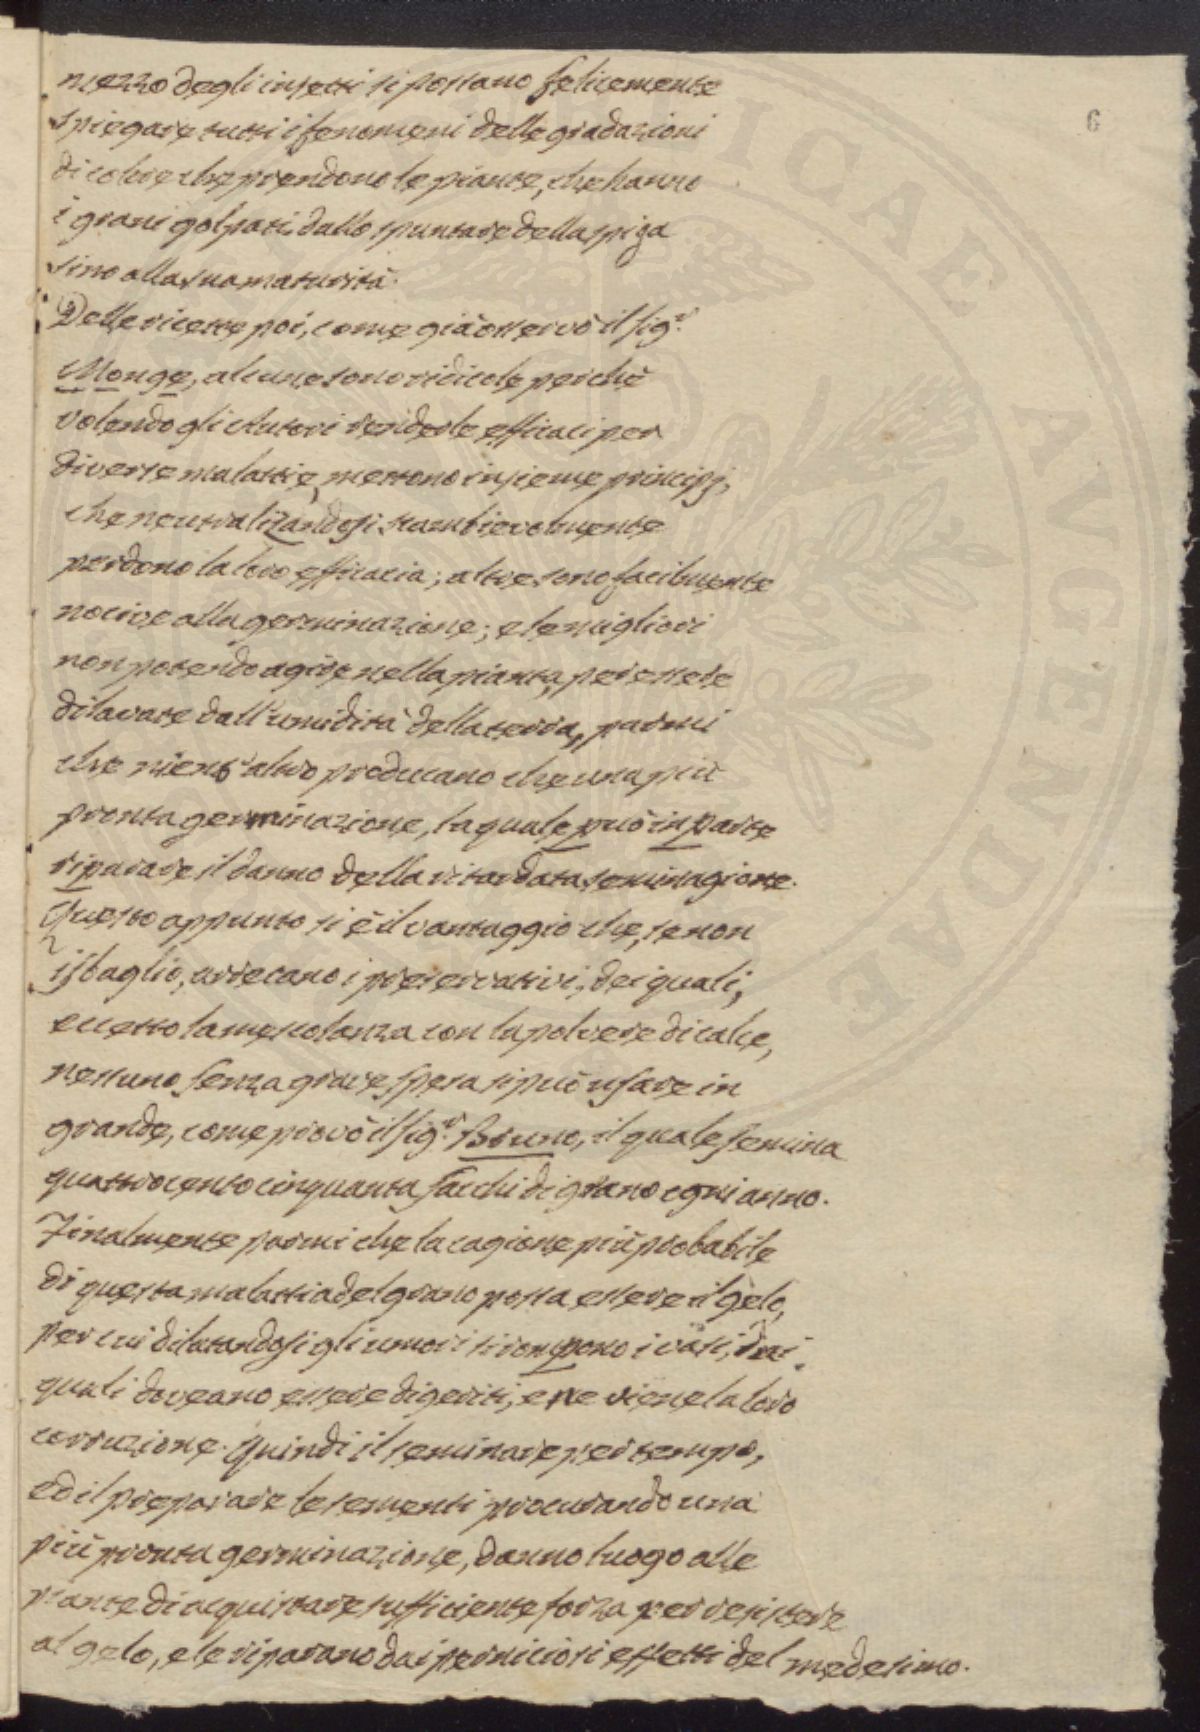 6
mezzo degli insetti si possano felicemente
spiegare tutti i fenomeni delle gradazioni
di colore che prendono le piante, che hanno
i grani golpati dallo spuntare della spiga
sino alla sua maturità.
Delle ricette poi, come già osservò il Sig.r
Monge, alcune sono ridicole perchè
volendo gli Autori renderle efficaci per
diverse malattie, mettono insieme principj,
che neutralizandosi scambievolmente
perdono la loro efficacia; altre sono facilmente
nocive alla germinazione; e le migliori
non potendo agire nella pianta, per essere
dilavate dall'umidità della terra, parmi
che nient'altro producano che una più
pronta germinazione, la quale può in parte
riparare il danno della ritardata seminagione.
Questo appunto si è il vantaggio che, se non
isbaglio, arrecano i preservativi, dei quali,
eccetto la mescolanza con la polvere di calce,
nessuno senza grave spesa si può usare in
grande, come provò il Sig.r Bruno, il quale semina
quattrocento cinquanta sacchi di grano ogni anno.
Finalmente parmi che la cagione più probabile
di questa malattia del grano possa essere il gelo,
per cui dilatandosi gli umori si rompono i vasi, dai
quali doveano essere digeriti, e ne viene la loro
corruzione. Quindi il seminare per tempo,
ed il preparare le sementi procurando una
più pronta germinazione, danno luogo alle
piante di acquistare sufficiente forza per resistere
al gelo, e le riparano dai perniciosi effetti del medesimo.
ICAE AVGENDAE